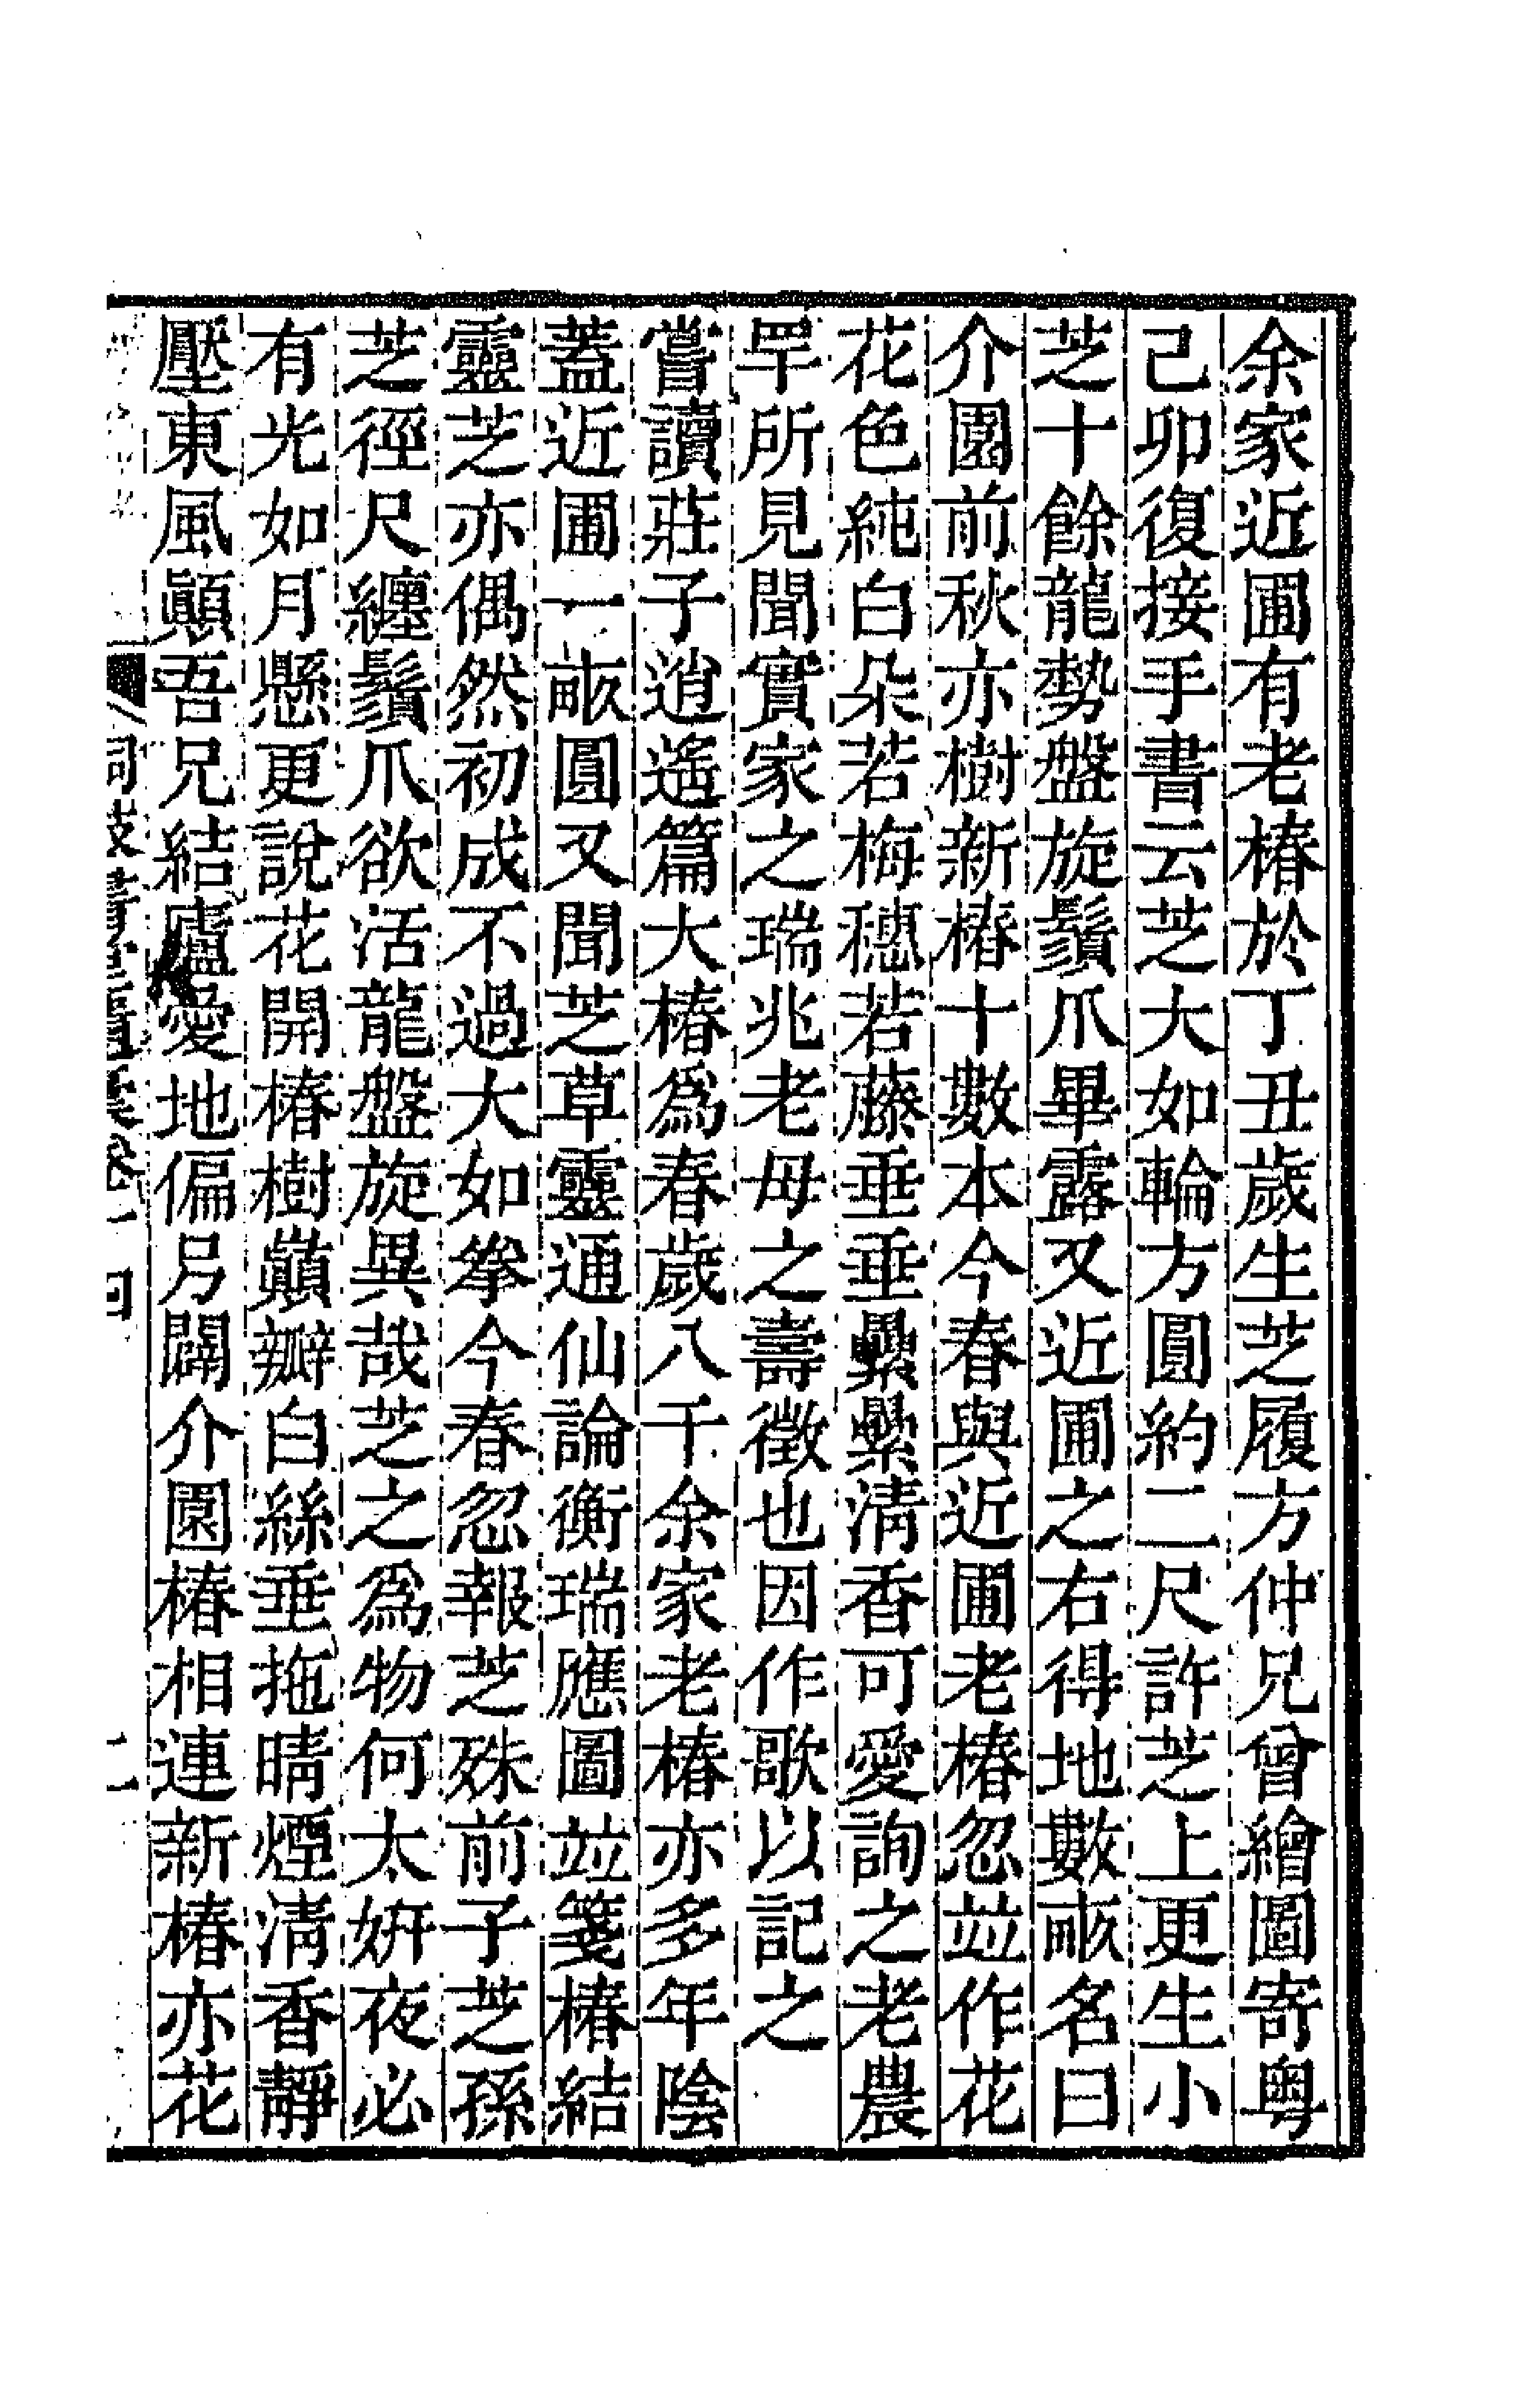 余家近圃有老椿於丁丑歲生芝履方仲兄曾繪圖寄粤
己卯復接手書云芝大如輪方圓約二尺許芝上更生小
芝十餘龍勢盤旋鬚爪畢露又近圃之右得地數畝名曰
介園前秋亦樹新椿十數本今春與近圃老椿忽竝作花
花色純白朵若梅穗若藤垂垂纍纍清香可愛詢之老農
罕所見聞實家之瑞兆老母之壽徵也因作歌以記之
嘗讀莊子逍遙篇大椿爲春歲八千余家老椿亦多年陰
蓋近圃一畝圓又聞芝草靈通仙論衡瑞應圖竝箋椿結
靈芝亦偶然初成不過大如拳今春忽報芝殊前子芝孫
芝徑尺纏鬚爪欲活龍盤旋異哉芝之爲物何太姸夜必
有光如月懸更說花開椿樹巓瓣白絲垂拖晴煙清香靜
壓東風顚吾兄結廬愛地偏另闢介園椿相連新椿亦花